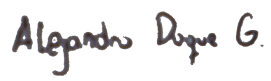 Alejandro Duque G.